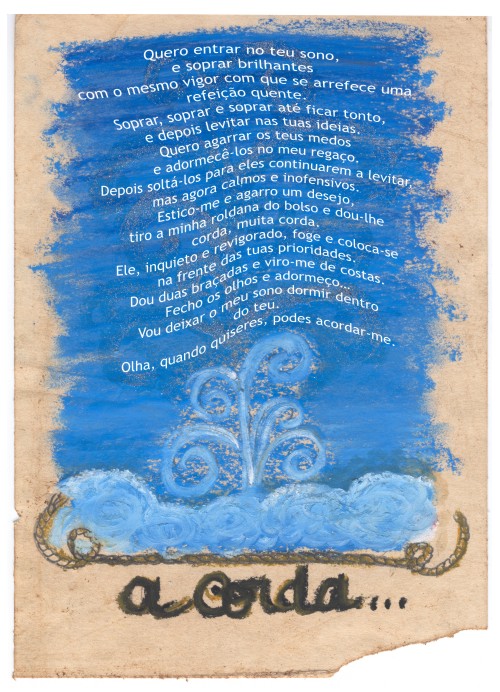 Quero entrar no teu sono,
e soprar brilhantes
com o mesmo vigor com que se arrefece uma
refeição quente.
Soprar, soprar e soprar até ficar tonto,
e depois levitar nas tuas ideias.
Quero agarrar os teus medos
e adormecê-los no meu regaço,
Depois soltá-los para eles continuarem a levitar,
mas agora calmos e inofensivos.
Estico-me e agarro um desejo,
tiro a minha roldana do bolso e dou-lhe
corda, muita corda,
Ele, inquieto e revigorado, foge e coloca-se
na frente das tuas prioridades.
Dou duas braçadas e viro-me de costas.
Fecho os olhos e adormeço...
Vou deixar o meu sono dormir dentro
do teu.
Olha, quando quiseres, podes acordar-me.
a corda....